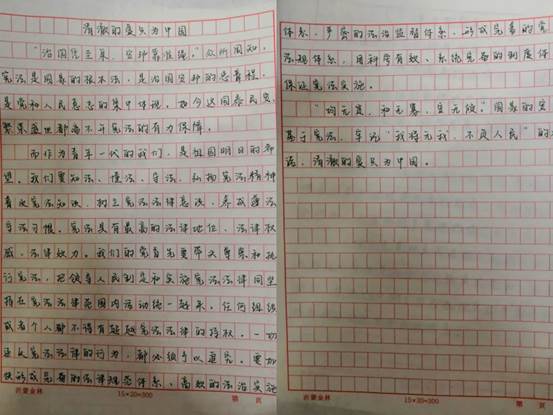 清澈的爱只为中国
“治国凭圭臬,安邦靠准绳。”众所周知,
宪法是国家的根本法,是治国安邦的总章程,
是党和人民意志的集中体现。如今这国泰民安、
繁荣盛世都离不开宪法的有力保障。
而作为青年一代的我们,是祖国明日的希
望。我们要知法、懂法、守法,弘扬宪法精神
宪法知识,树立宪法法律意识,养成遵法
守法习惯。宪法具有最高的法律地位、法律权
威、法律效力。我们的党首先要带头尊崇和执
行宪法,把领导人民制定和实施宪法法律同坚
持在宪法法律范围内活动统一起来。任何组织
或者个人都不得有超越宪法法律的特权。一切
违反宪法法律的行为,都必须予以追究。要加
快形成完备的法律规范体系、高效的法治实施
沂蒙金林
15×20=300
第 页
体系、严密的法治监督体系,形成完善的党
法规体系,用科学有效、系统完备的制度体
保证宪法实施。
基于宪法,牢记“我将无我,不负人民”的
话,清澈的爱只为中国。
沂蒙金林
15×20=300
第 页